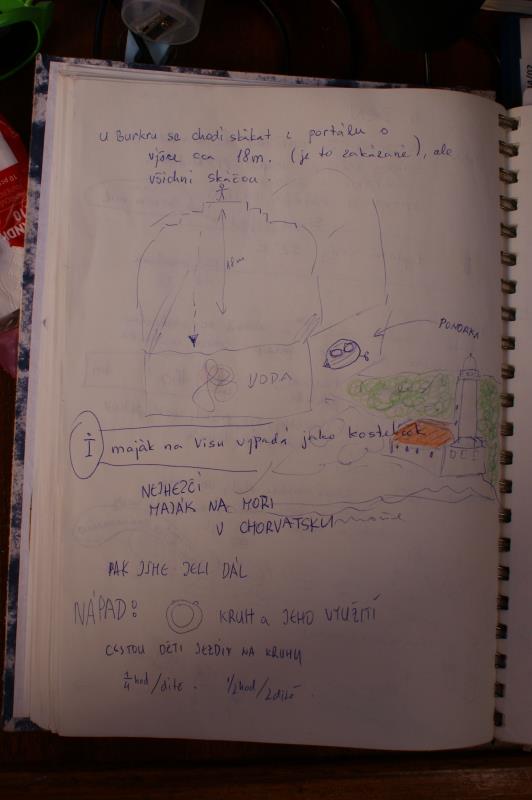 U Burkru se chodí skákat z portálu o
výšce cca 18m. (je to zakázané), ale
všichni skáčou.
18m
PONORKA
VODA
I maják na Visu vypadá jako kosteleček
NEJHEZČÍ
MAJÁK NA MOŘI
V CHORVATSKU
moře
PAK JSME JELI DÁL
NÁPAD: KRUH a JEHO VYUŽITÍ
CESTOU DĚTI JEZDÍY NA KRUHU
1/4 hod/dítě. 1/2hod/2dítě.